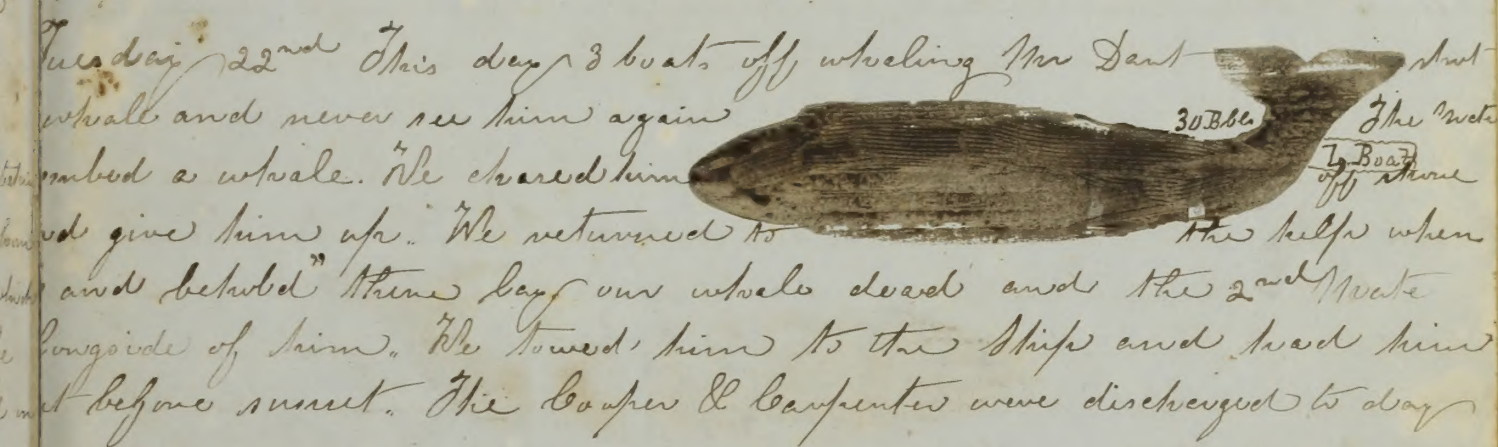 Tuesday 22nd This day 3 boats off whaling Mr Dant shot
whale and never see him again 30 Bbls The Mate
bombed a whale. We chased him L. Boat off shore
nd give him up. We returned to the kelp when
and behold" there lay our whale dead and the 2nd Mate
longside of him. We towed him to the Ship and had him
t before sunset. The Cooper & Carpenter were discharged to day